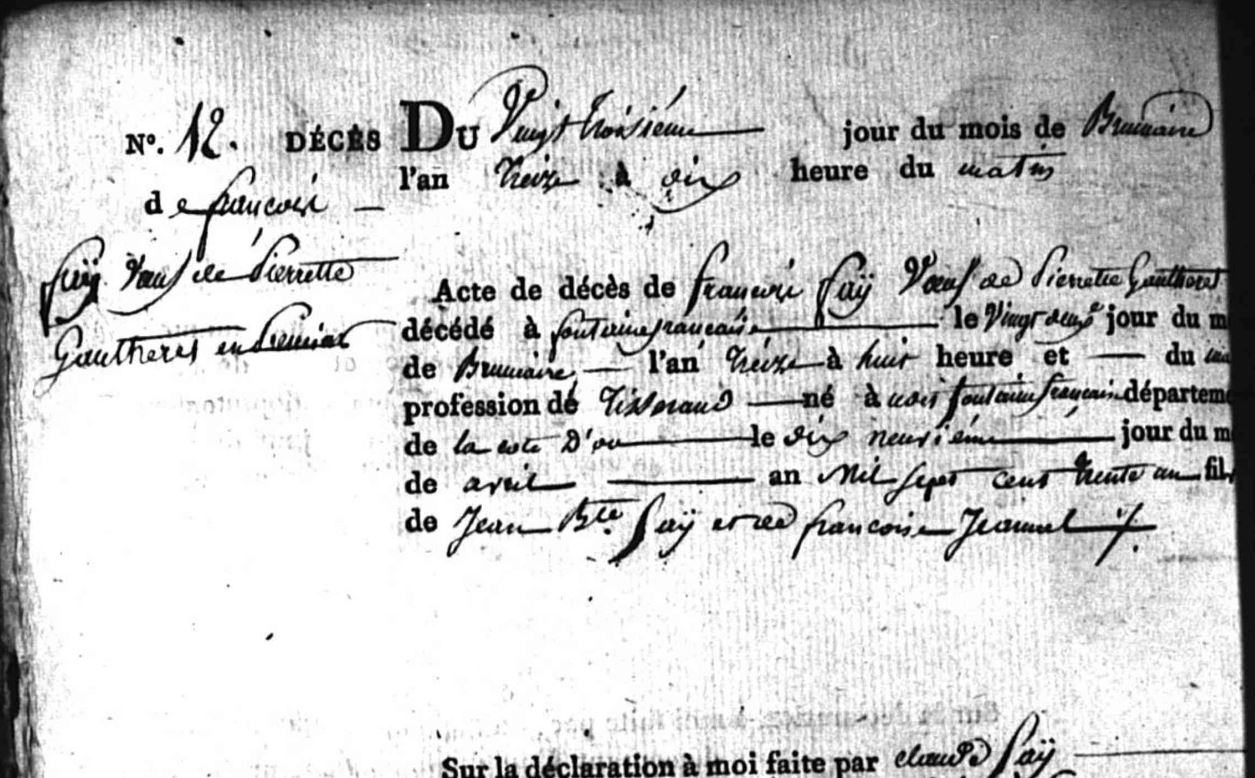 N°. 12. DÉCÈS DU Vingt troisiéme jour du mois de Brumaire
l'an treize à dix heure du matin
de françois
faÿ Veuf de Pierrette
Gautheret en Premier
Acte de décès de françois faÿ Veuf de Pierrette Gautheret
décédé à fontaine française le Vingt deux jour du m
de Brumaire l'an treize à huit heure et du
profession de tisserand né à fontaine française départeme
de la cote d'or le dix neuviéme jour du m
de avril an mil sept cent trente un fil
de Jean Bte faÿ et de françoise Jeannel
Sur la déclaration à moi faite par claude faÿ